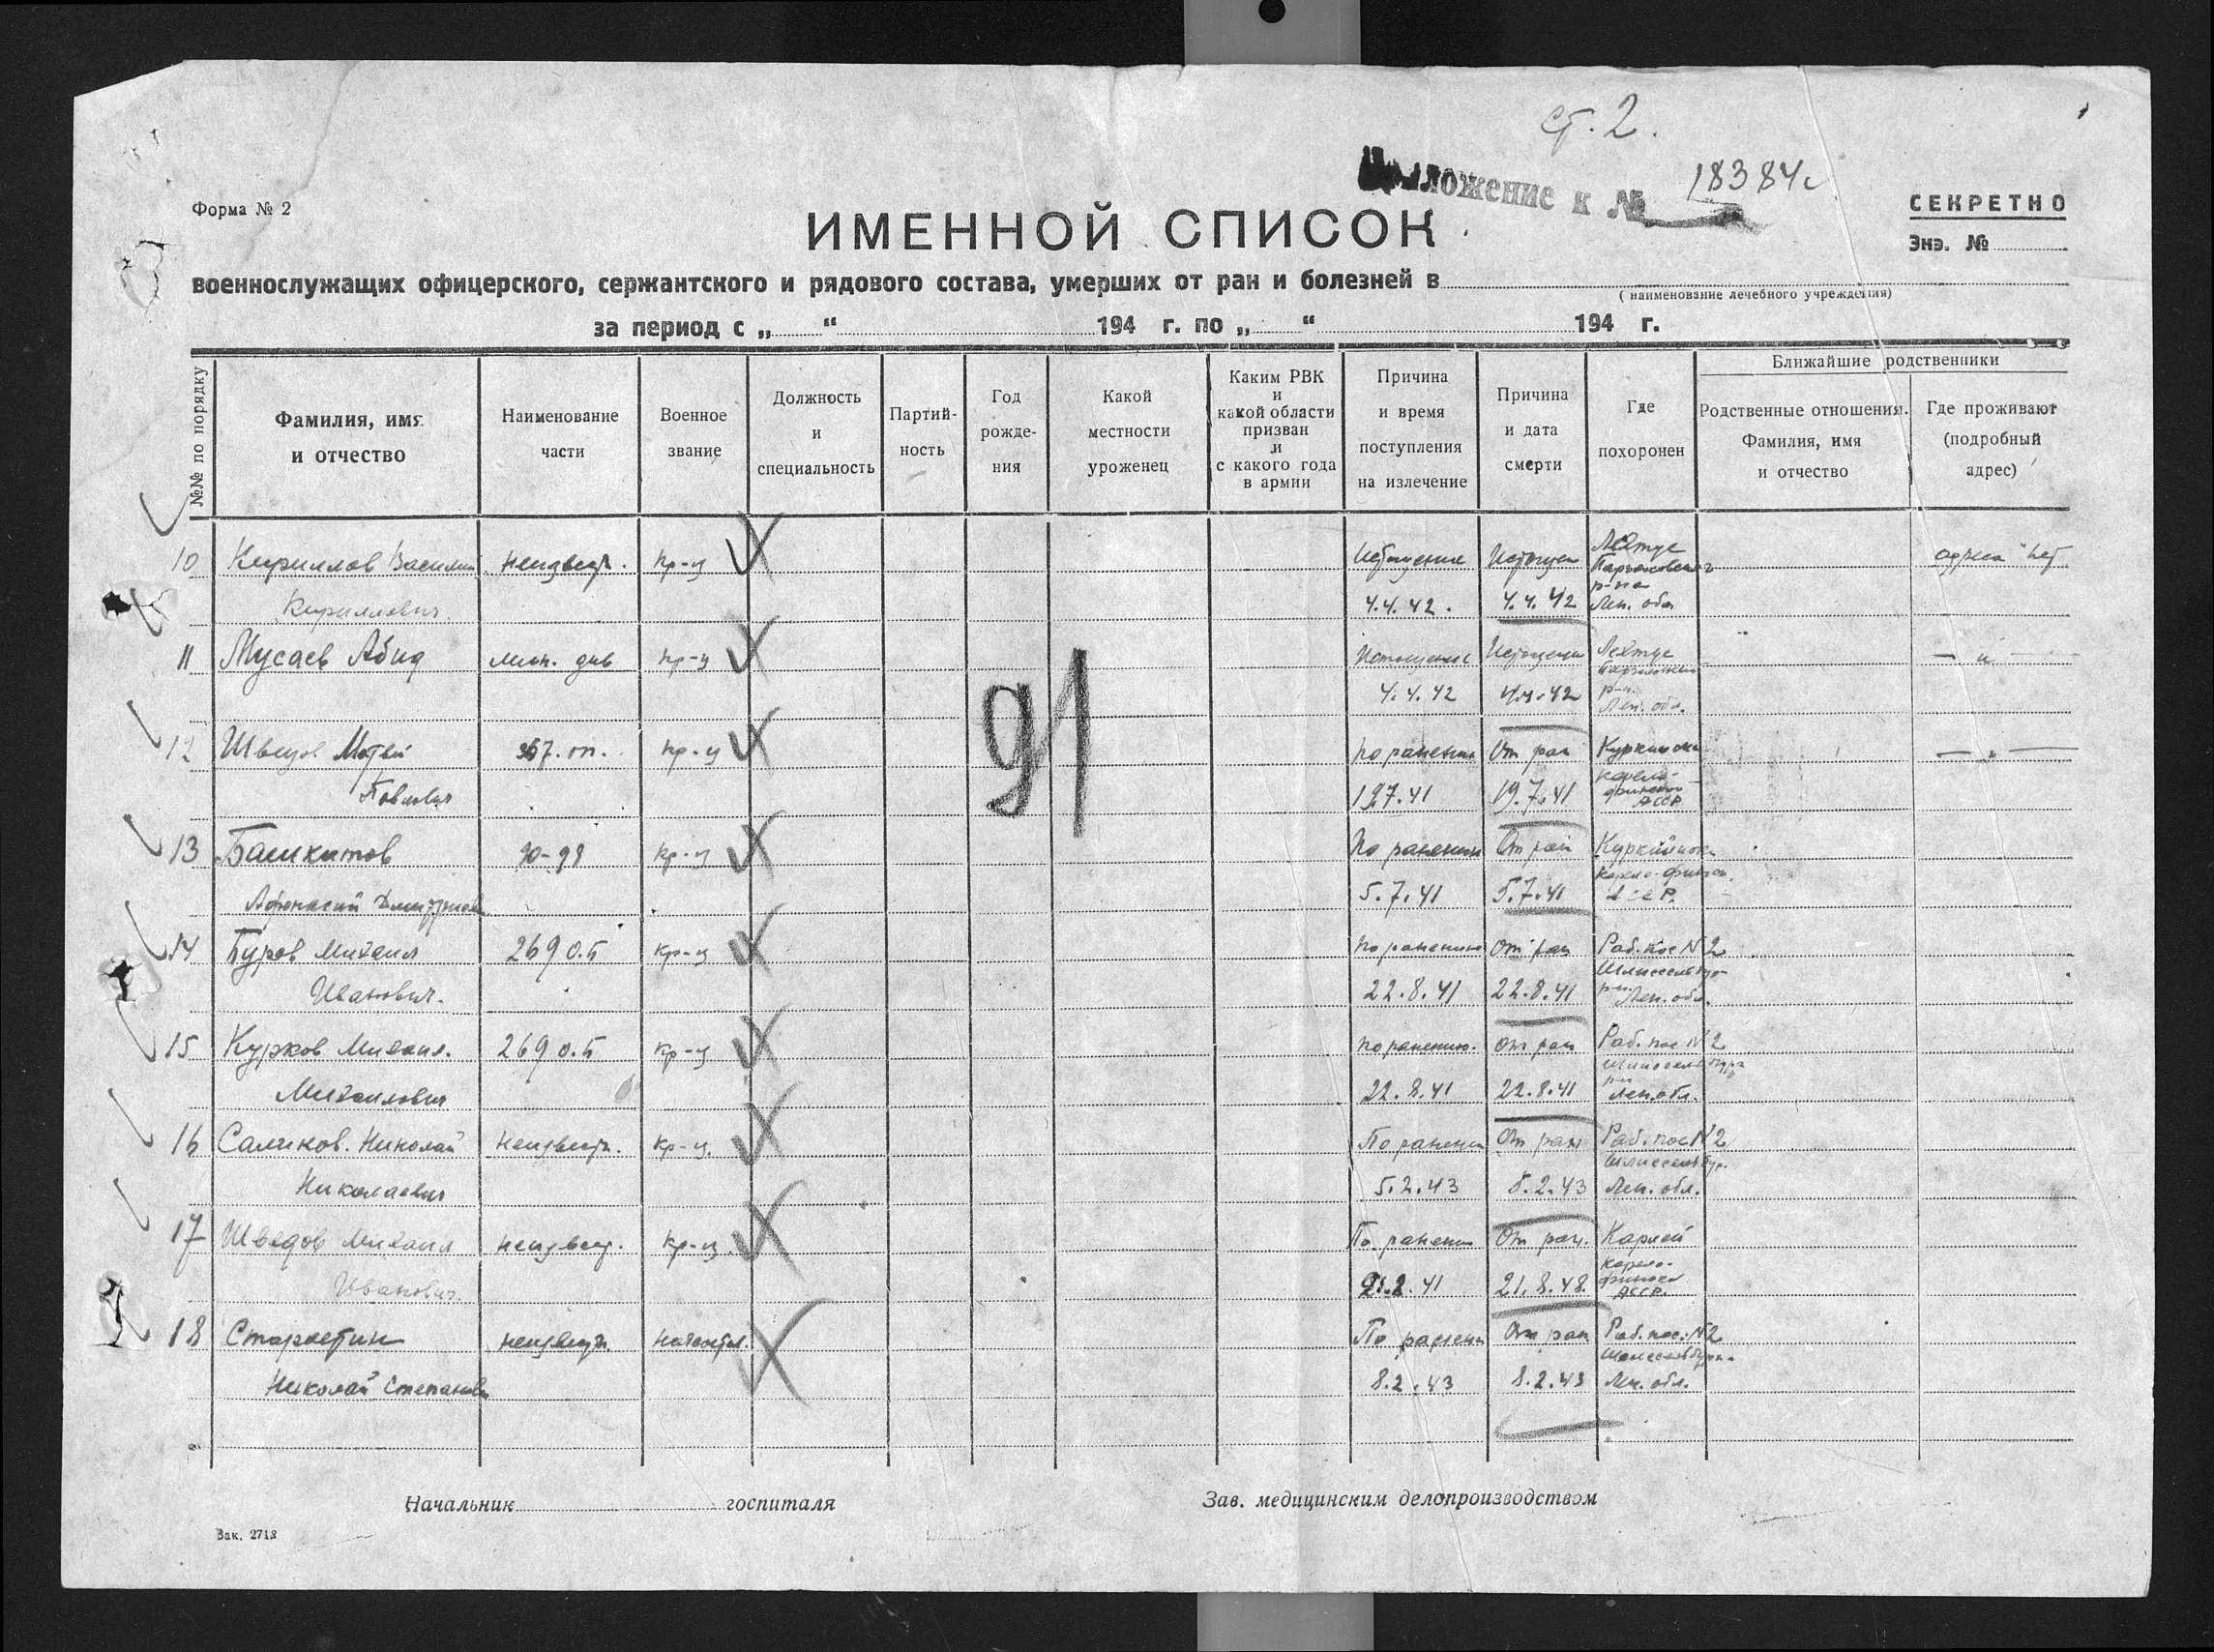 ст. 2.
Приложение к № 18384с
Форма № 2
СЕКРЕТНО
ИМЕННОЙ СПИСОК
Экз. №
военнослужащих офицерского, сержантского и рядового состава, умерших от ран и болезней в
(наименование лечебного учреждения)
за период с „ “ 194 г. по „ “ 194 г.
№№ по порядку
Фамилия, имя и отчество
Наименование части
Военное звание
Должность и специальность
Партийность
Год рождения
Какой местности уроженец
Каким РВК и какой области призван и с какого года в армии
Причина и время поступления на излечение
Причина и дата смерти
Где похоронен
Ближайшие родственники
Родственные отношения. Фамилия, имя и отчество
Где проживают (подробный адрес)
10 Кириллов Василий неизвест. кр-ц Истощение Лехтус адреса нет
Кириллович 4.4.42. 4.4.42 Лен. обл
11 Мусаев Абид кр-ц Истощение Лехтус — " —
4.4.42 4.4.42 Лен. обл.
91
12 Швецов Матвей кр-ц по ранению От ран — " —
Павлович 19.7.41 19.7.41 карело-финской АССР
13 Башкитов кр-ц По ранению От ран
Афонасий Дмитриев 5.7.41 5.7.41
14 Буров Михаил 269 о.б кр-ц по ранению От ран Раб. пос N 2
Иванович. 22.8.41 22.8.41 Лен. обл.
15 Курков Михаил. 269 о.б кр-ц по ранению. От ран Раб. пос N 2
Михайлович 22.8.41 22.8.41 Лен. обл.
16 Саликов. Николай неизвест. кр-ц. По ранению От ран Раб. пос N 2
Николаевич 5.2.43 8.2.43 Лен. обл.
17 Шведов Михаил неизвест. кр-ц. По ранению От ран.
Иванович. 41 21.8.48 АССР.
18 неизвест По ранению От ран Раб. пос. N 2
Николай Степанович 8.2.43 8.2.43 Лен. обл.
Начальник госпиталя
Зав. медицинским делопроизводством
Зак. 2718